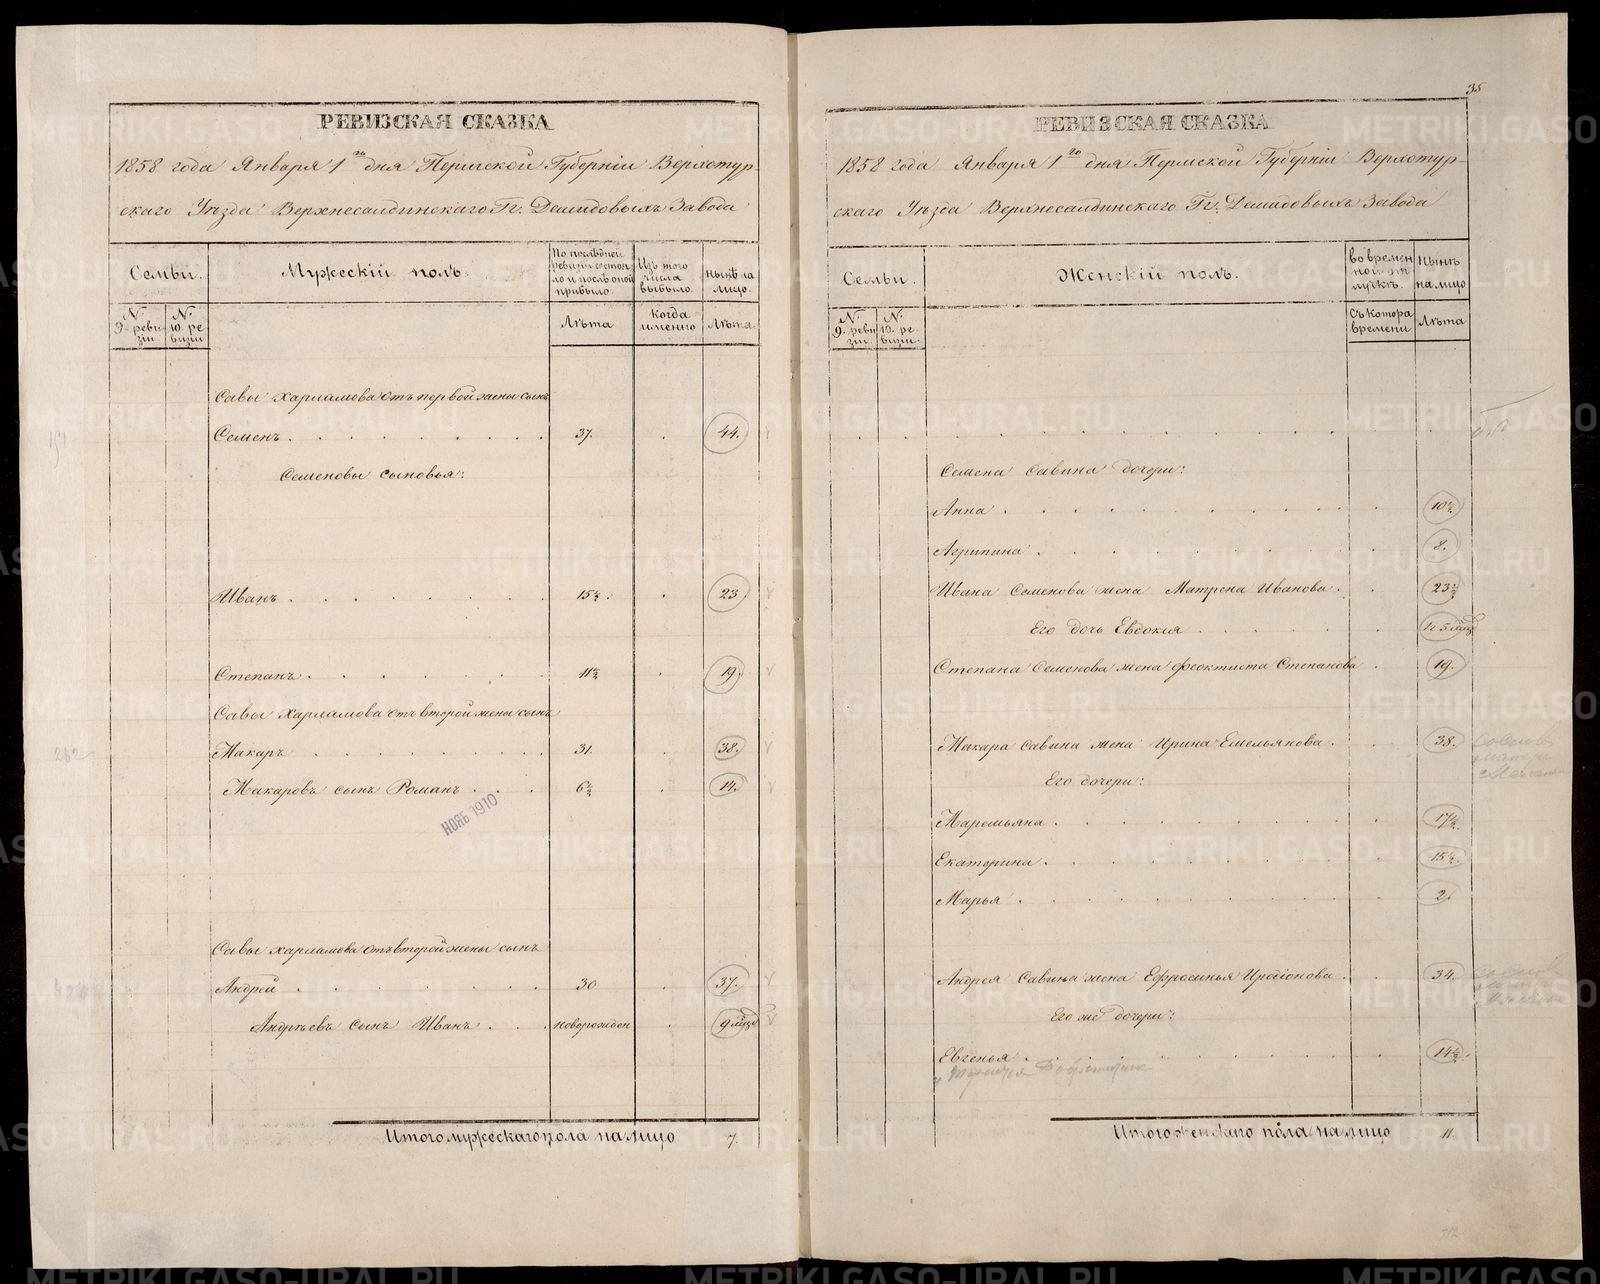 РЕВИЗСКАЯ СКАЗКА
1858 года Января 1го дня Пермской Губерніи Верхотур-
скаго Уѣзда Верхнесалдинскаго Гг. Демидовыхъ Завода
Семьи.
Мужескій полъ.
По послѣдней ревизіи состояло и послѣ оной прибыло.
Изъ того числа выбыло.
Нынѣ на лицо.
№ 9. ревизіи
№ 10. ревизіи
Лѣта
Когда именно
Лѣта.
Савы Харламова отъ первой жены сынъ
Семенъ . . . 37. . 44.
Семеновы сыновья:
Иванъ . . . 15½. . 23
Степанъ . . . 11½ . 19.
Савы Харламова отъ второй жены сынъ
Макаръ . . . 31. . 38.
Макаровъ сынъ Романъ . . . 6½ . 14.
НОЯБ 1910
Савы Харламова отъ второй жены сынъ
Андрей . . . 30 . 37.
Андреевъ сынъ Иванъ . . . новорожден . 9
Итого мужескаго пола на лицо 7.
35
РЕВИЗСКАЯ СКАЗКА
1858 года Января 1го дня Пермской Губерніи Верхотур-
скаго Уѣзда Верхнесалдинскаго Гг. Демидовыхъ Завода
Семьи.
Женскій полъ.
во временной отлучкѣ.
Нынѣ на лицо
№ 9. ревизіи
№ 10. ревизіи
Съ котора времени
Лѣта
Семена Савина дочери:
Анна . . . 10½
Агрипина . . . 8.
Ивана Семенова жена Матрена Иванова . . 23½
Его дочь Евдокія . . .
Степана Семенова жена Феоктиста Степанова . 19.
Макара Савина жена Ирина Емельянова . . 38.
Его дочери:
Маремьяна . . . 17½.
Екатерина . . . 15½.
Марья . . . 2.
Андрея Савина жена Ефросинья Иродіонова . . 34.
Его же дочери:
Евгенья . . . 14½.
Итого женскаго пола на лицо 11.
METRIKI.GASO-URAL.RU